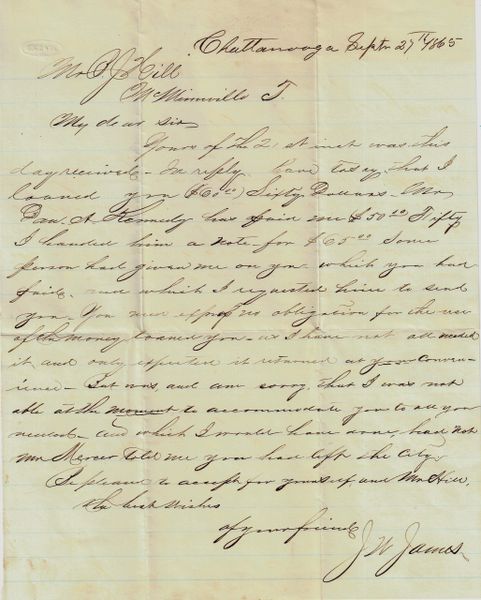 Chattanooga Septr 27th 1865
Mr P. J. Hill
McMinnville T.
My dear sir
Yours of the 21st inst was this
day received – In reply have to say, that I
loaned you ($60.00) Sixty Dollars. Mr
A. Kennedy has paid me $50.00 Fifty
I handed him a note for $65.00 Some
person had given me on you which you had
paid, and which I requested him to send
you. You need no obligation for the use
of the money loaned you – as I have not needed
it, and only expected it returned at your conven-
ience – But was, and am sorry, that I was not
able at the moment to accommodate you to all you
needed – and which I would have done, had not
Mr Mercer told me you had left the City.
Be pleased to accept for yourself and Mrs Hill,
the best wishes
of your friend
J W James